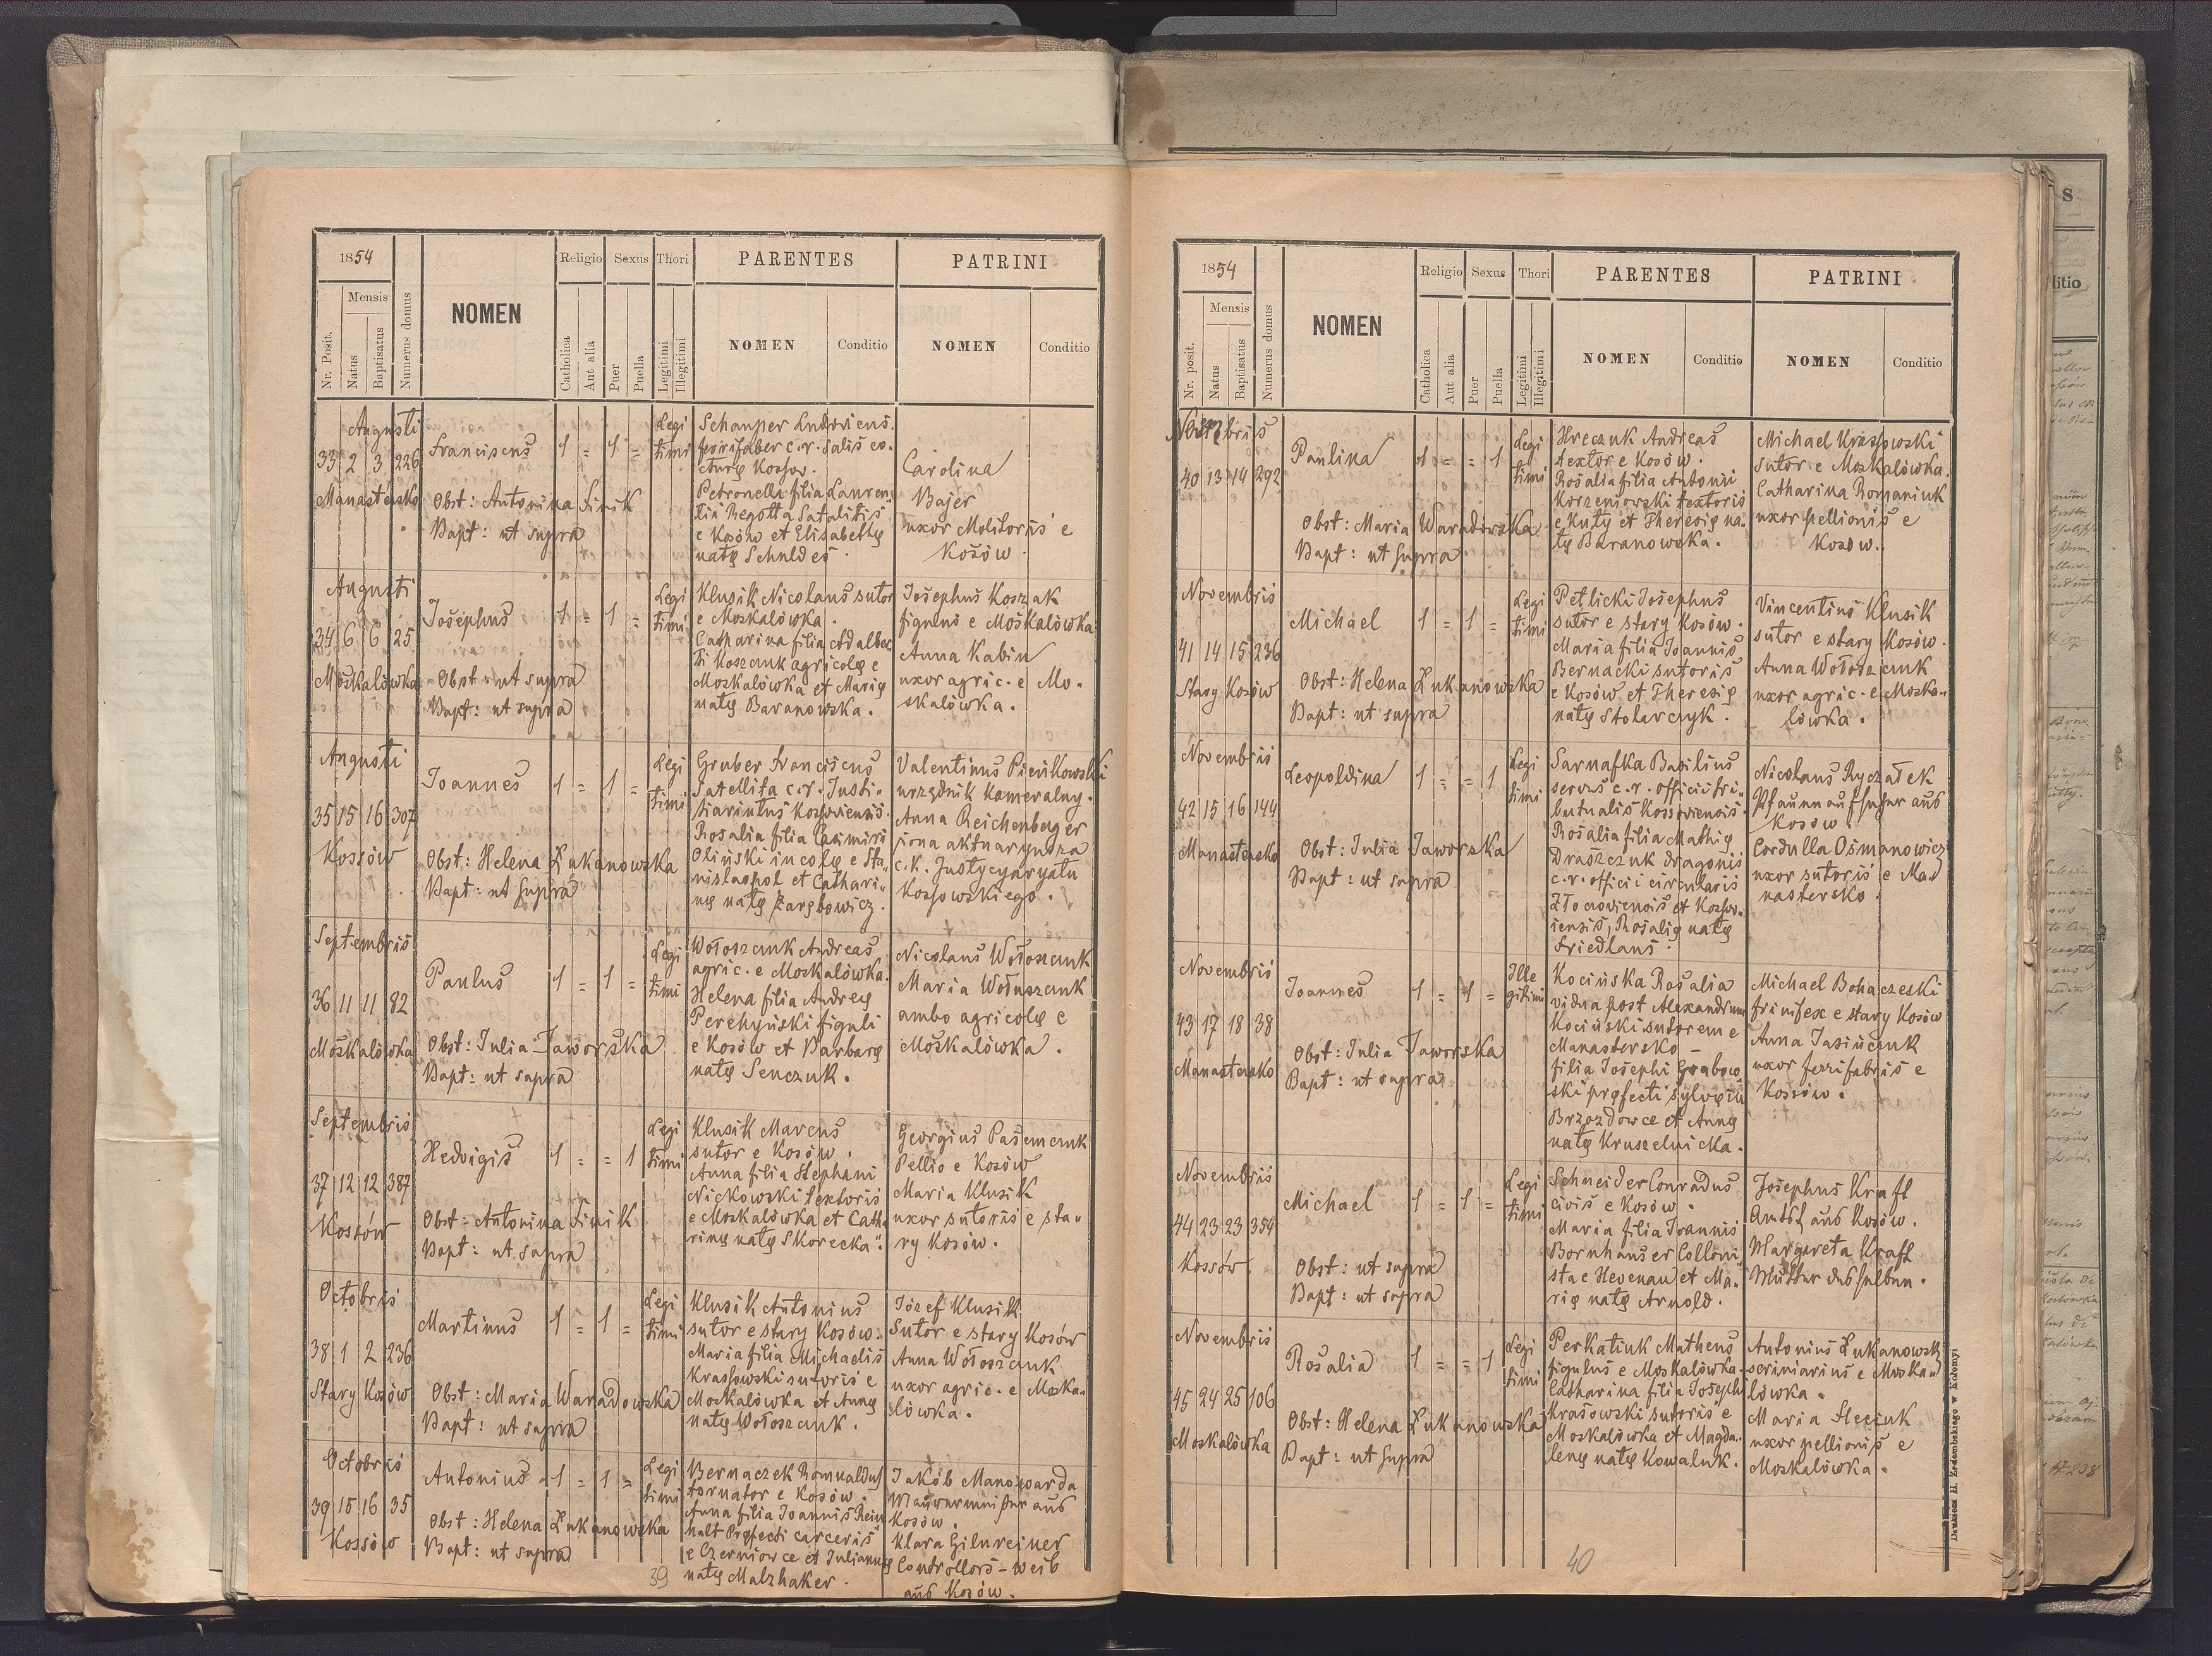 1854
Nr. Posit.
Mensis
Natus
Baptisatus
Numerus domus
NOMEN
Religio
Catholica
Aut alia
Sexus
Puer
Puella
Thori
Legitimi
Illegitimi
PARENTES
NOMEN
Conditio
PATRINI
NOMEN
Conditio
Augusti
33 2 3 226
Manastersko
Franciscus
1 = 1 =
Legi
timi
Obst: Antonina Finik
Bapt: ut supra
Schauper Ludovicus
ferrifaber c.r. Salis co-
cturę Kossov.
Petronella filia Lauren-
tii Regotta Satalitis
e Kosów et Elisabethę
natę Schuldes.
Carolina
Bajer
uxor Molitoris e
Kosów.
Augusti
34 6 6 25
Moskalówka
Josephus
1 = 1 =
Legi
timi
Obst: ut supra
Bapt: ut supra
Klusik Nicolaus sutor
e Moskalówka.
Catharina filia Adalber-
ti Koszcuk agricolę e
Moskalówka et Marię
natę Baranowska.
Josephus Koszak
figulus e Moskalówka
Anna Kabin
uxor agric. e Mo-
skalówka.
Augusti
35 15 16 307
Kossów
Joannes
1 = 1 =
Legi
timi
Obst: Helena Łukanowska
Bapt: ut supra
Gruber Franciscus
Satellita c.r. Justi-
tiariatus Kossoviensis.
Rosalia filia Casimiri
Oliński incolę e Sta-
nislaopol et Cathari-
nę natę Zarębowicz.
Valentinus Pieńkowski
urzędnik kameralny.
Anna Reichenberger
żona aktuaryusza
c.k. Justycyaryatu
Kossowskiego.
Septembris
36 11 11 82
Moskalówka
Paulus
1 = 1 =
Legi
timi
Obst: Julia Jaworska
Bapt: ut supra
Wołoszcuk Andreas
agric. e Moskalówka.
Helena filia Andreę
Perehyński figuli
e Kosów et Barbarę
natę Senczuk.
Nicolaus Wołoszcuk
Maria Wołuszcuk
ambo agricolę e
Moskalówka.
Septembris
37 12 12 387
Kossów
Hedvigis
1 = = 1
Legi
timi
Obst: Antonina Finik
Bapt: ut supra
Klusik Marcus
sutor e Kosów.
Anna filia Stephani
Nickowski textoris
e Moskalówka et Catha-
rinę natę Skorecka.
Georgius Pasemcuk
Pellio e Kosów
Maria Klusik
uxor sutoris e sta-
ry Kosów.
Octobris
38 1 2 236
Stary Kosów
Martinus
1 = 1 =
Legi
timi
Obst: Maria Waradowska
Bapt: ut supra
Klusik Antonius
sutor e stary Kosów.
Maria filia Michaelis
Krassowski sutoris e
Moskalówka et Annę
natę Wołoszcuk.
Józef Klusik
Sutor e stary Kosów
Anna Wołoszcuk
uxor agric. e Moska-
lówka.
Octobris
39 15 16 35
Kossów
Antonius
1 = 1 =
Legi
timi
Obst: Helena Łukanowska
Bapt: ut supra
Bernaczek Romualdus
tornator e Kosów.
Anna filia Joannis Rein-
halt Pręfecti carceris
e Czerniowce et Juliannę
natę Malzhaker.
Jakób Manowarda
Maurermeister aus
Kosów.
Klara Gilnreiner
Controllors-weib
aus Kosów.
39
1854
Nr. posit.
Mensis
Natus
Baptisatus
Numerus domus
NOMEN
Religio
Catholica
Aut alia
Sexus
Puer
Puella
Thori
Legitimi
Illegitimi
PARENTES
NOMEN
Conditio
PATRINI
NOMEN
Conditio
Novembris
40 13 14 292
Paulina
1 = = 1
Legi
timi
Obst: Maria Waradowska
Bapt: ut supra
Hreczuk Andreas
textor e Kosów.
Rosalia filia Antonii
Korzeniowski textoris
e Kuty et Theresię na-
tę Baranowska.
Michael Krassowski
Sutor e Moskalówka.
Catharina Romaniuk
uxor pellionis e
Kosów.
Novembris
41 14 15 236
Stary Kosów
Michael
1 = 1 =
Legi
timi
Obst: Helena Łukanowska
Bapt: ut supra
Petlicki Josephus
sutor e stary Kosów.
Maria filia Joannis
Bernacki sutoris
e Kosów et Theresię
natę Stolarczyk.
Vincentius Klusik
sutor e stary Kosów.
Anna Wołoszcuk
uxor agric. e Moska-
lówka.
Novembris
42 15 16 144
Manastersko
Leopoldina
1 = = 1
Legi
timi
Obst: Julia Jaworska
Bapt: ut supra
Sarnafka Basilius
servus c.r. officii tri-
butualis Kossoviensis.
Rosalia filia Mathię
Draszczuk dragonis
c.r. officii circularis
Złoczoviensis et Kossov-
iensis, Rosalię natę
Friedlans.
Nicolaus Ryczałek
Pfannaufseher aus
Kosów
Cordulla Osmanowicz
uxor sutoris e Ma-
nastersko.
Novembris
43 17 18 38
Manastersko
Joannes
1 = 1 =
Ille
gitimi
Obst: Julia Jaworska
Bapt: ut supra
Kocińska Rosalia
vidua post Alexandrum
Kociński sutorem e
Manastersko –
filia Josephi Grabow-
ski pręfecti sylvę in
Brzozdowce et Annę
natę Kruszelnicka.
Michael Bohaczeski
e stary Kosów
Anna Jasińcuk
uxor ferrifabris e
Kossów.
Novembris
44 23 23 354
Kossów
Michael
1 = 1 =
Legi
timi
Obst: ut supra
Bapt: ut supra
Schneider Conradus
civis e Kosów.
Maria filia Joannis
Bornhauser Colloni-
sta e Hevenau et Ma-
rię natę Arnold.
Josephus Kraft
aus Kosów.
Margareta Kraft
Mutter desselben.
Novembris
45 24 25 106
Moskalówka
Rosalia
1 = = 1
Legi
timi
Obst: Helena Łukanowska
Bapt: ut supra
Perkatiuk Matheus
figulus e Moskalówka.
Catharina filia Joseph
Krasowski sutoris e
Moskalówka et Magda-
lenę natę Kowaluk.
Antonius Łukanowski
scriniarius e Moska-
lówka.
Maria Sleziuk
uxor pellionis e
Moskalówka.
40
Drukiem H. Zadembskiego w Kołomyi